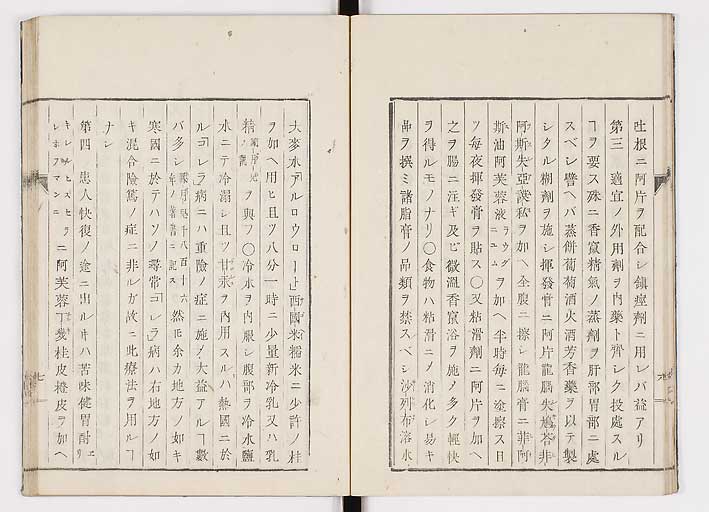 吐根ニ阿片ヲ配合シ鎮痙劑ニ用レバ益アリ
第三 適宜ノ外用劑ヲ内藥ト齊シク投處スル
ヿヲ要ス殊ニ香竄精氣ノ蒸劑ヲ肝部胃部ニ處
スベシ譬ヘバ蒸餅葡萄酒火酒芳香藥ヲ以テ製
シタル糊劑ヲ施シ揮發膏ニ阿片龍腦
阿斯失亞謨私ヲ加ヘ全腹ニ擦シ龍腦膏ニ菲阿
斯油阿芙蓉液ヲ加ヘ半時每ニ塗擦ス日
ツ每夜揮發膏ヲ貼ス〇又粘滑劑ニ阿片ヲ加ヘ
之ヲ腸ニ注ギ及ビ微溫香竄浴ヲ施ノ多ク輕快
ヲ得ルモノナリ〇食物ハ粘滑ニノ消化シ易キ
品ヲ撰ミ諸脂膏ノ品類ヲ禁スベシ沙列布溶水
大麥水アルロウロート西國米糯米ニ少許ノ桂
ヲ加ヘ用ヒ且ツ八分一時ニ少量新冷乳又ハ乳
精ヲ與フ〇冷水ヲ内服シ腹部ヲ冷水鹽
水ニテ冷溻シ且ツ甘汞ヲ内用スルハ熱國ニ於
ルコレラ病ニハ重險ノ症ニ施ノ大益アルヿ數
バ多シ千八百十六年ノ著書ニ記ス然𪜈余カ地方ノ如キ
寒國ニ於テハソノ尋常コレラ病ハ右地方ノ如
キ混合險篤ノ症ニ非ルガ故ニ此療法ヲ用ルヿ
ナシ
第四 患人快復ノ途ニ出ルキハ苦味健胃酎
ニ阿芙蓉丁幾桂皮橙皮ヲ加ヘ
七